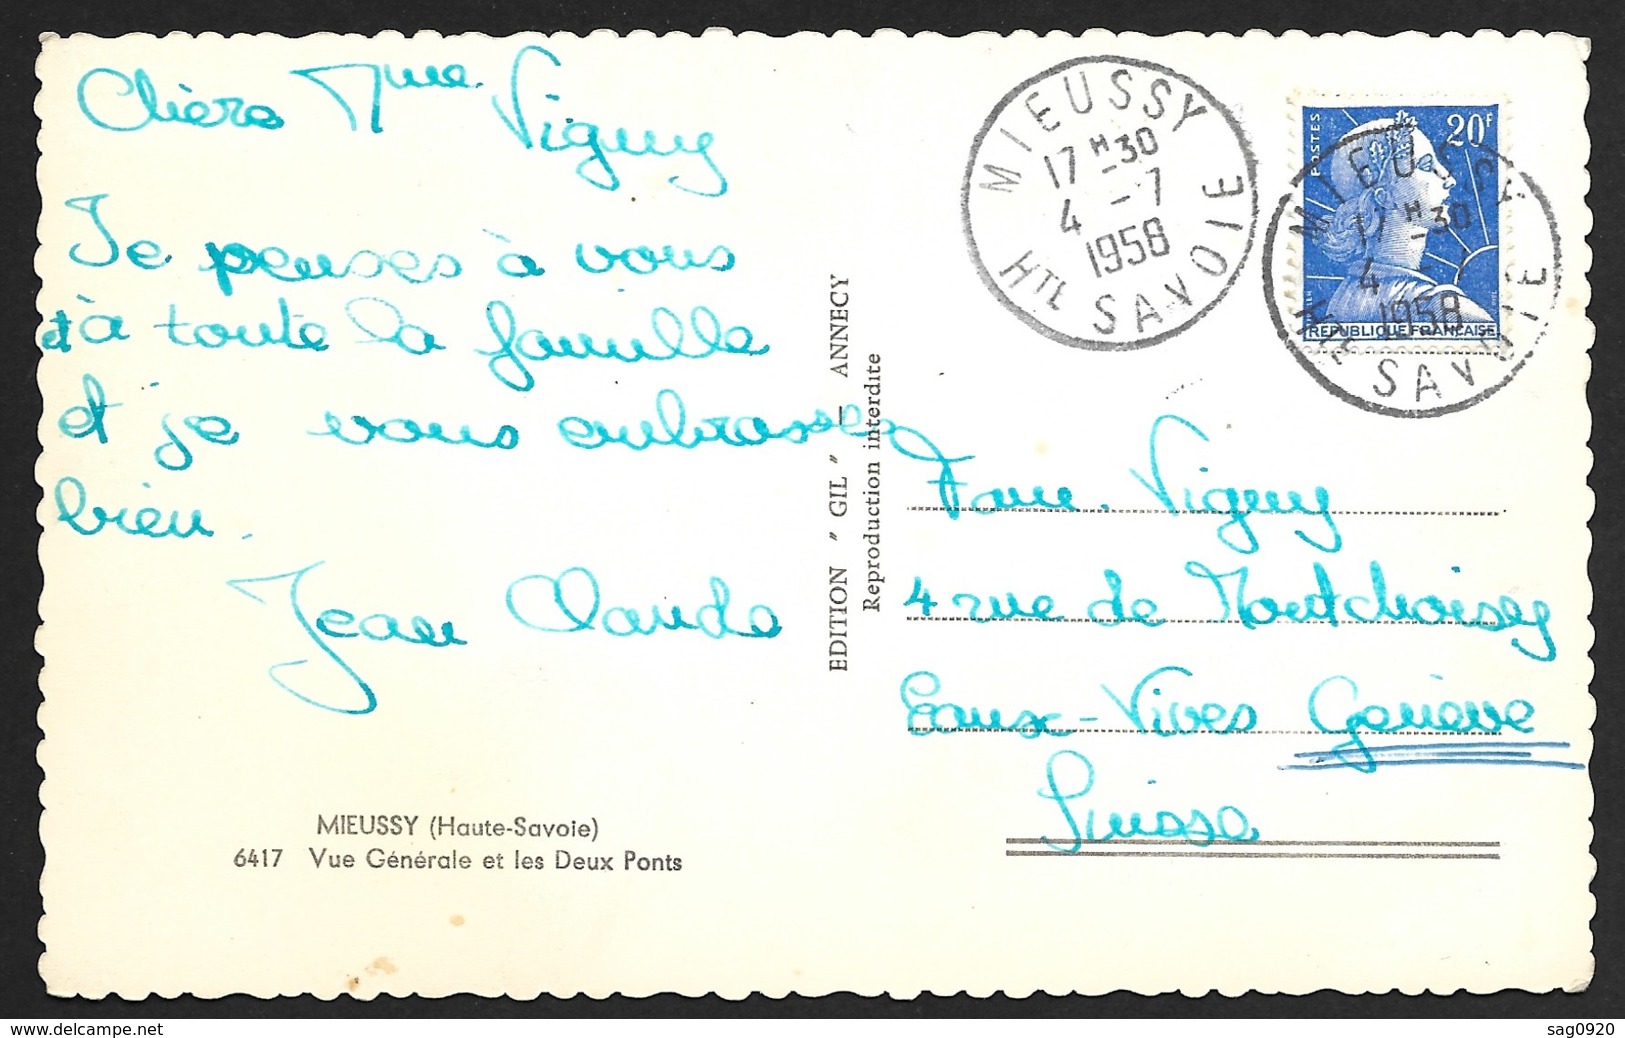 Chère Mme Vigny
Je penses à vous
et à toute la famille
et je vous enbrasses
bien.
Jean Claude
MIEUSSY (Haute-Savoie)
6417 Vue Générale et les Deux Ponts
EDITION " GIL " - ANNECY
Reproduction interdite
MIEUSSY
17 H -30
4 -7
1958
HTE SAVOIE
POSTES
20F
REPUBLIQUE FRANÇAISE
MIEUSSY
17 H -30
4 -7
1958
HTE SAVOIE
Fam. Vigny
4 rue de Montchoisy
Eaux-Vives Genève
Suisse
www.delcampe.net
sag0920